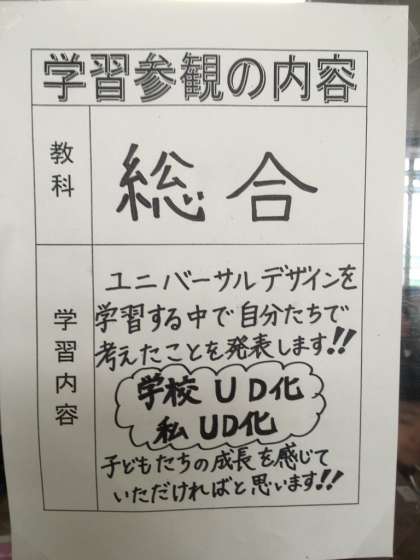 学習参観の内容
教科
総合
学習内容
ユニバーサルデザインを
学習する中で自分たちで
考えたことを発表します!!
学校 UD化
私 UD化
子どもたちの成長を感じて
いただければと思います!!